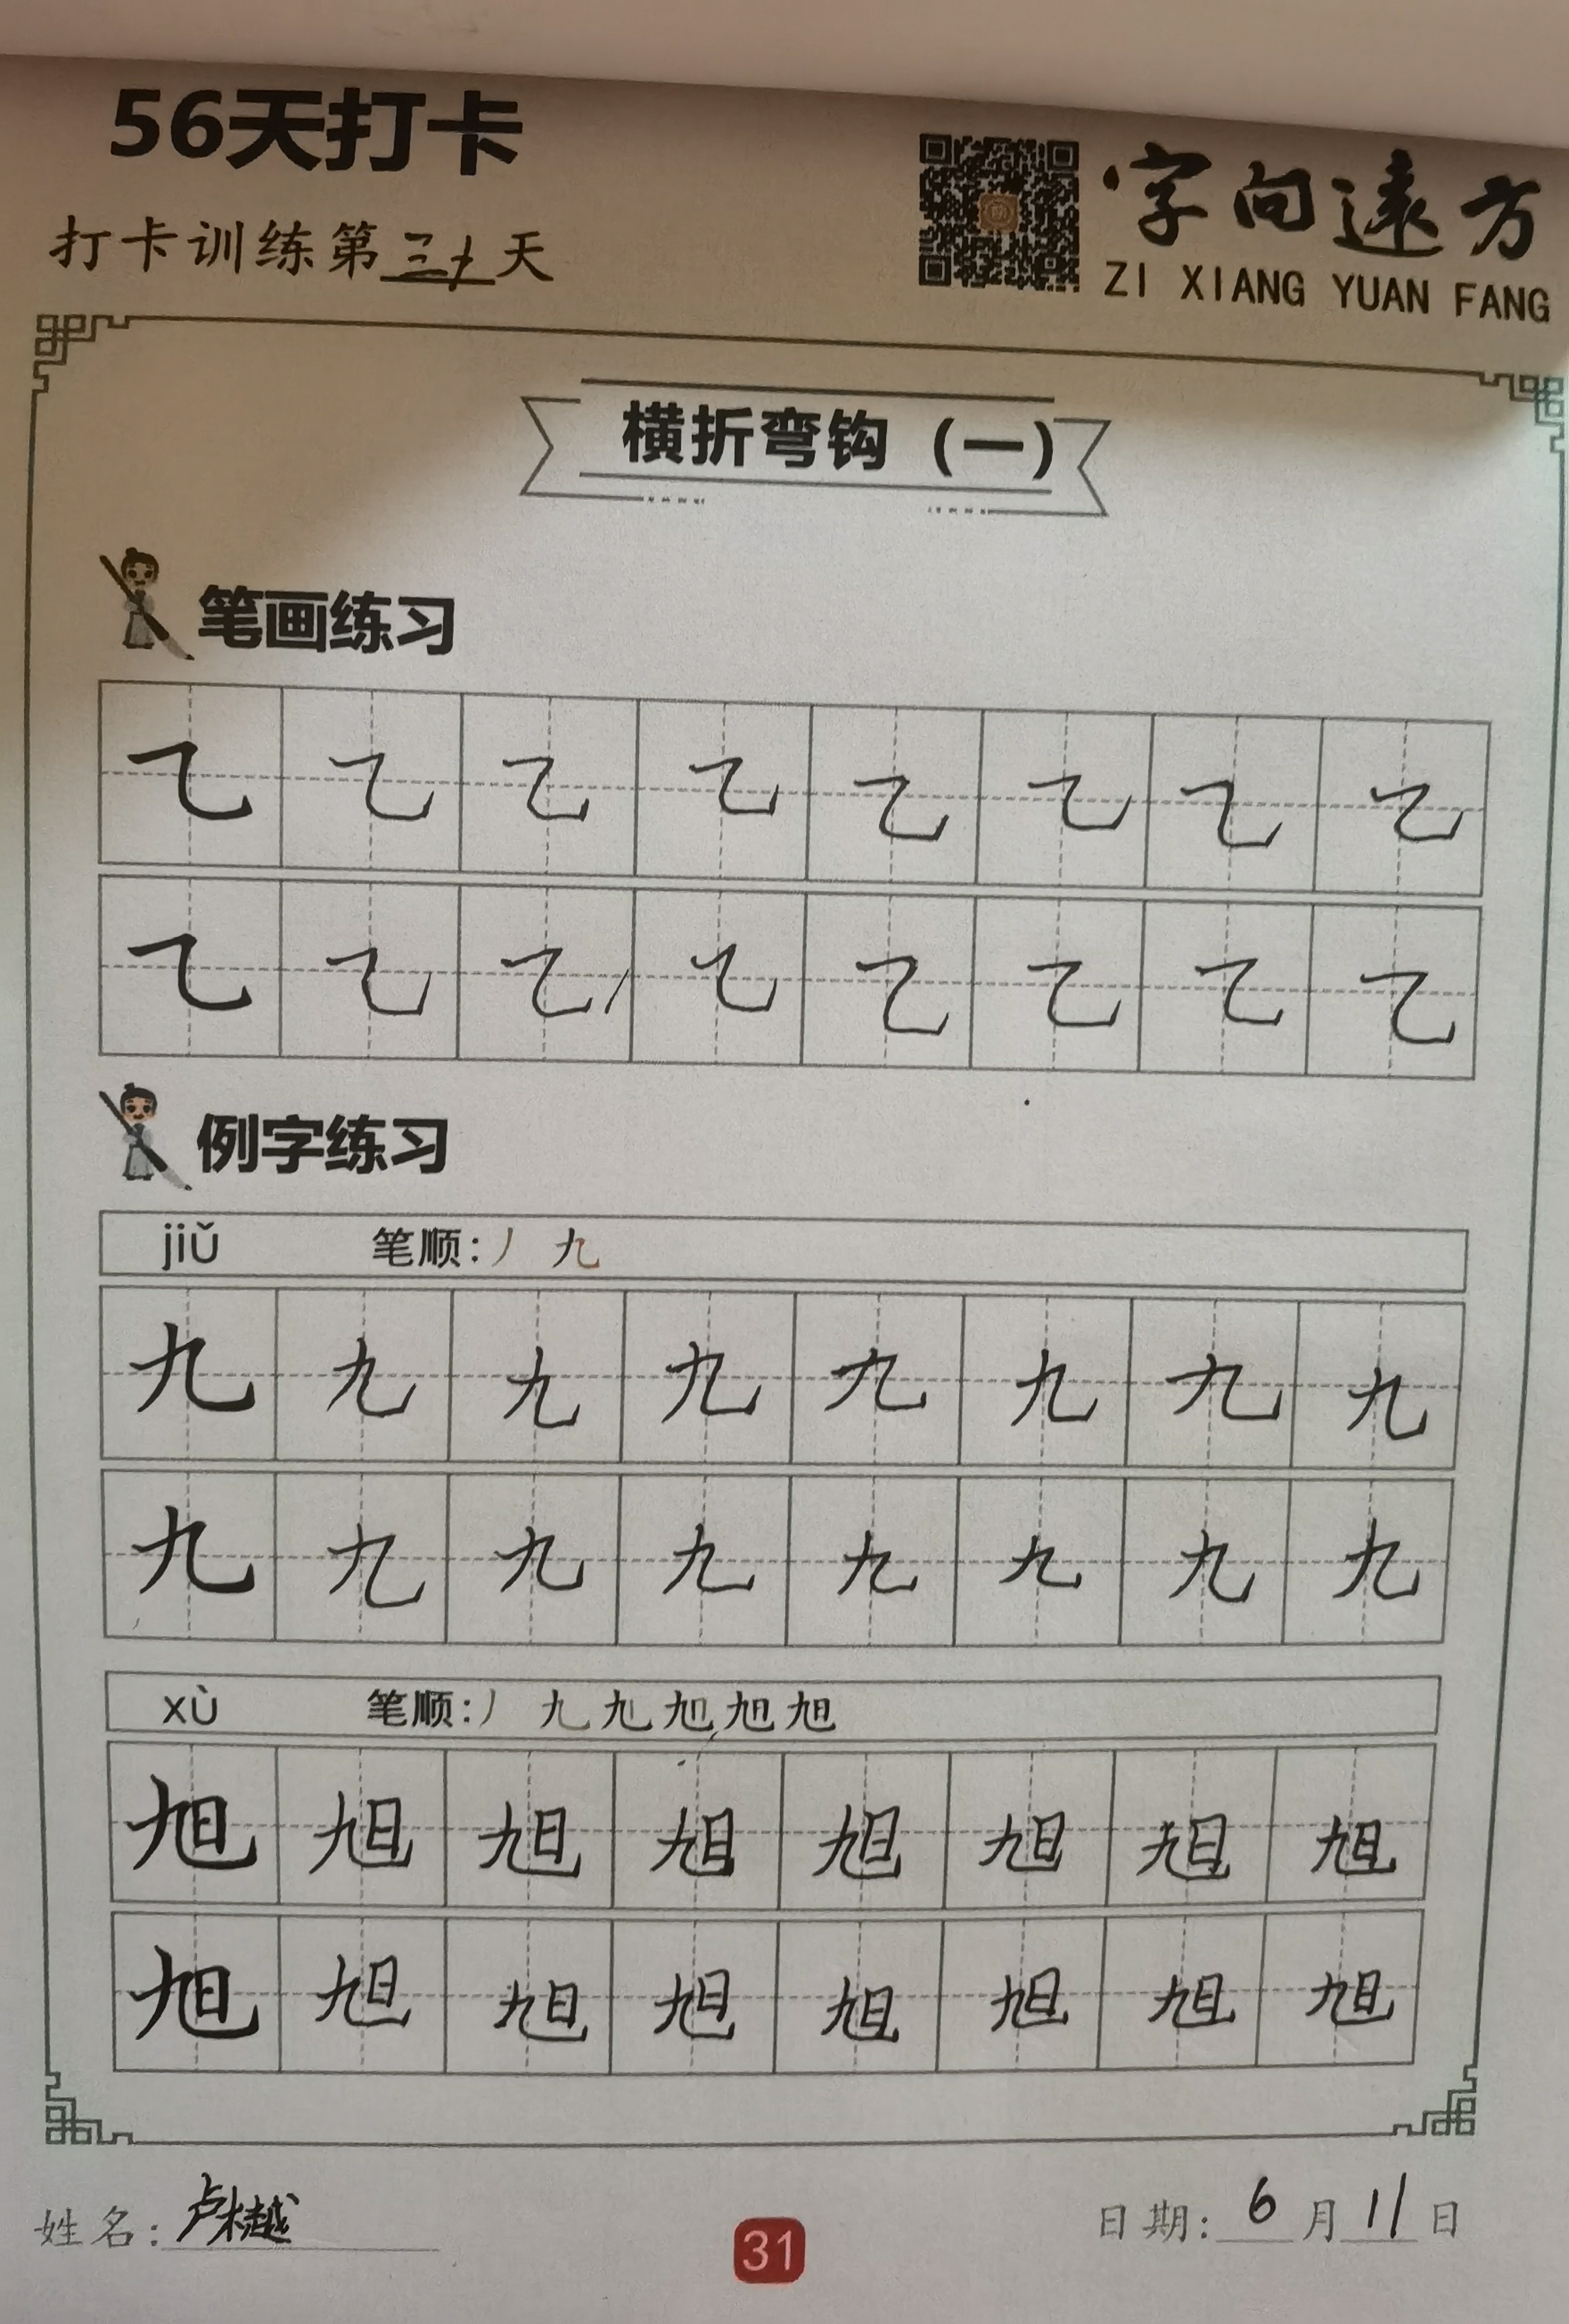 56天打卡
字向遠方
打卡训练第三十天
ZI XIANG YUAN FANG
横折弯钩（一）
笔画练习
㇈ ㇈ ㇈ ㇈ ㇈ ㇈ ㇈ ㇈
㇈ ㇈ ㇈ ㇈ ㇈ ㇈ ㇈ ㇈
例字练习
jiǔ 笔顺：丿 九
九 九 九 九 九 九 九 九
九 九 九 九 九 九 九 九
xù 笔顺：丿 九
旭 旭 旭 旭 旭 旭 旭 旭
旭 旭 旭 旭 旭 旭 旭 旭
姓名：卢 越
31
日期：6月11日